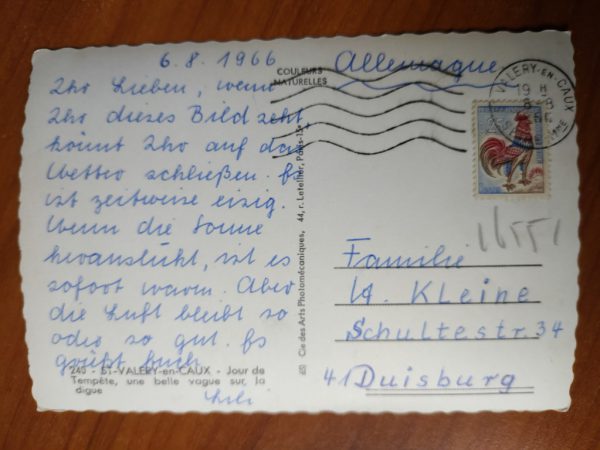 6.8.1966
Ihr Lieben, wenn
Ihr dieses Bild seht
könnt Ihr auf das
Wetter schließen. Es
ist zeitweise eisig.
Wenn die Sonne
heraussticht, ist es
sofort warm. Aber
die Luft bleibt so
oder so gut. Es
grüßt Euch
240 - ST-VALERY-en-CAUX - Jour de
Tempête, une belle vague sur la
digue
COULEURS
NATURELLES
Cie des Arts Photomécaniques, 44, r. Letellier, Paris-15e
Allemagne
VALERY-EN-CAUX
19 H
8-8
16551
Familie
W. Kleine
Schultestr. 34
41 Duisburg